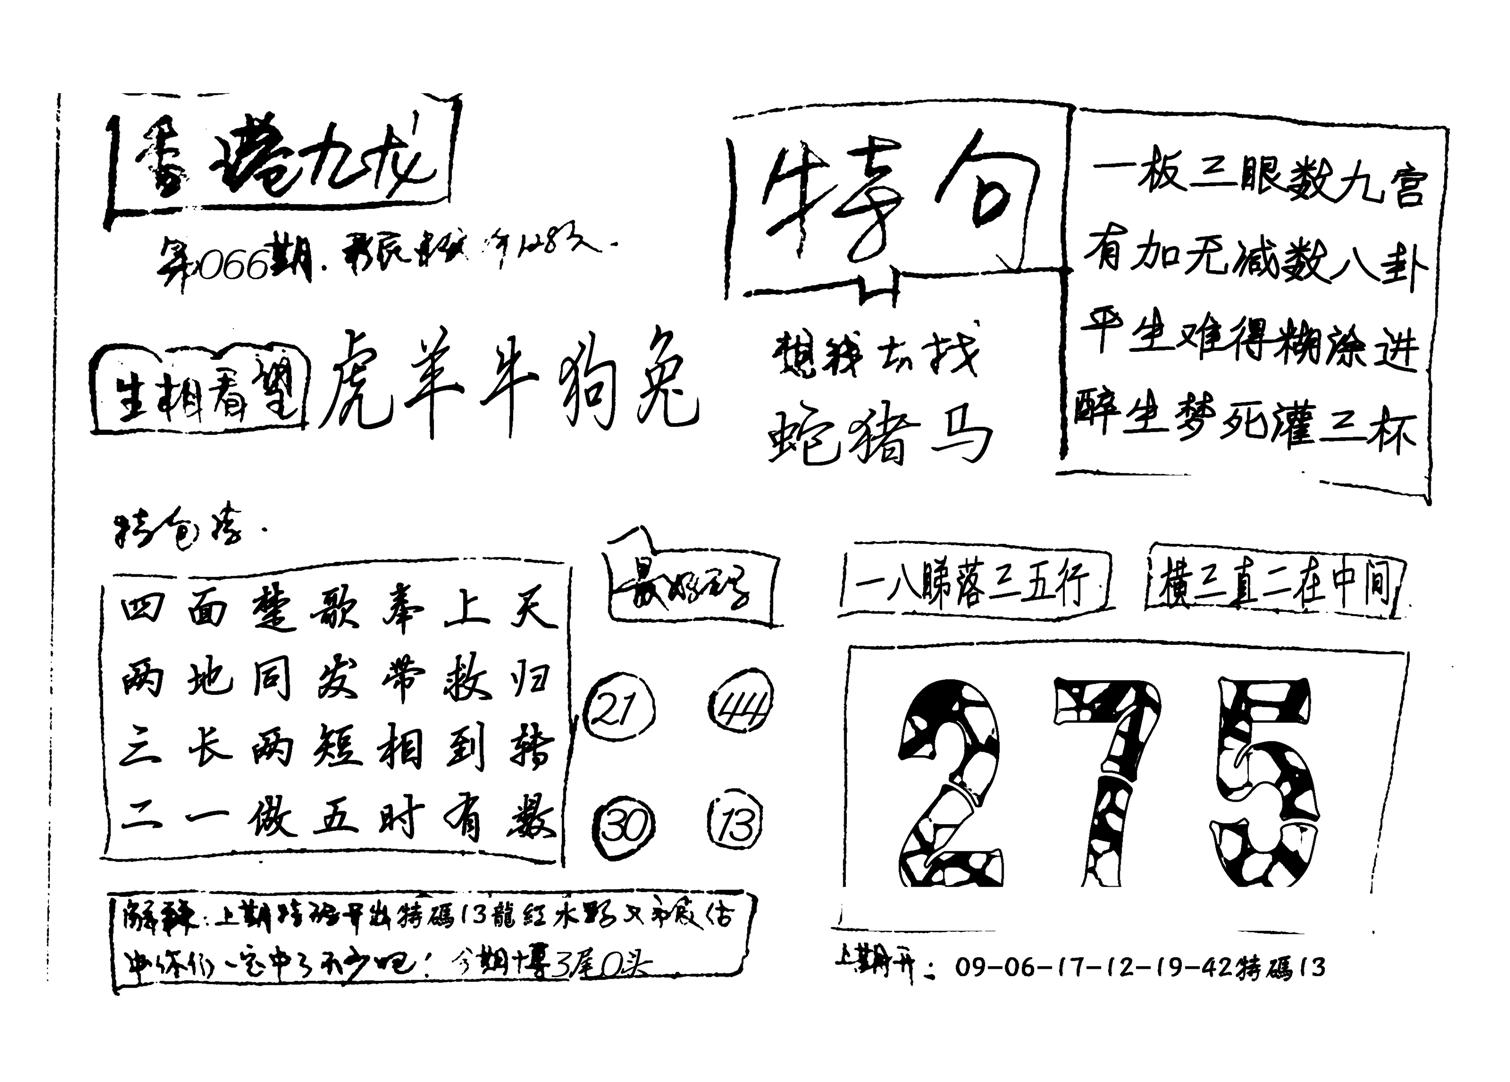 香港九龙
第066期.
生相看望
虎羊牛狗兔
特句
想钱去找
蛇猪马
一板三眼数九宫
有加无减数八卦
平生难得糊涂进
醉生梦死灌三杯
四面楚歌奉上天
两地同发带救归
三长两短相到转
二一做五时有数
最好码
21 44
30 13
一八睇落三五行
横三直二在中间
275
上期特码开出特碼13龍紅水
你们一定中了不少吧！今期博3尾0头
上期开：09-06-17-12-19-42特碼13